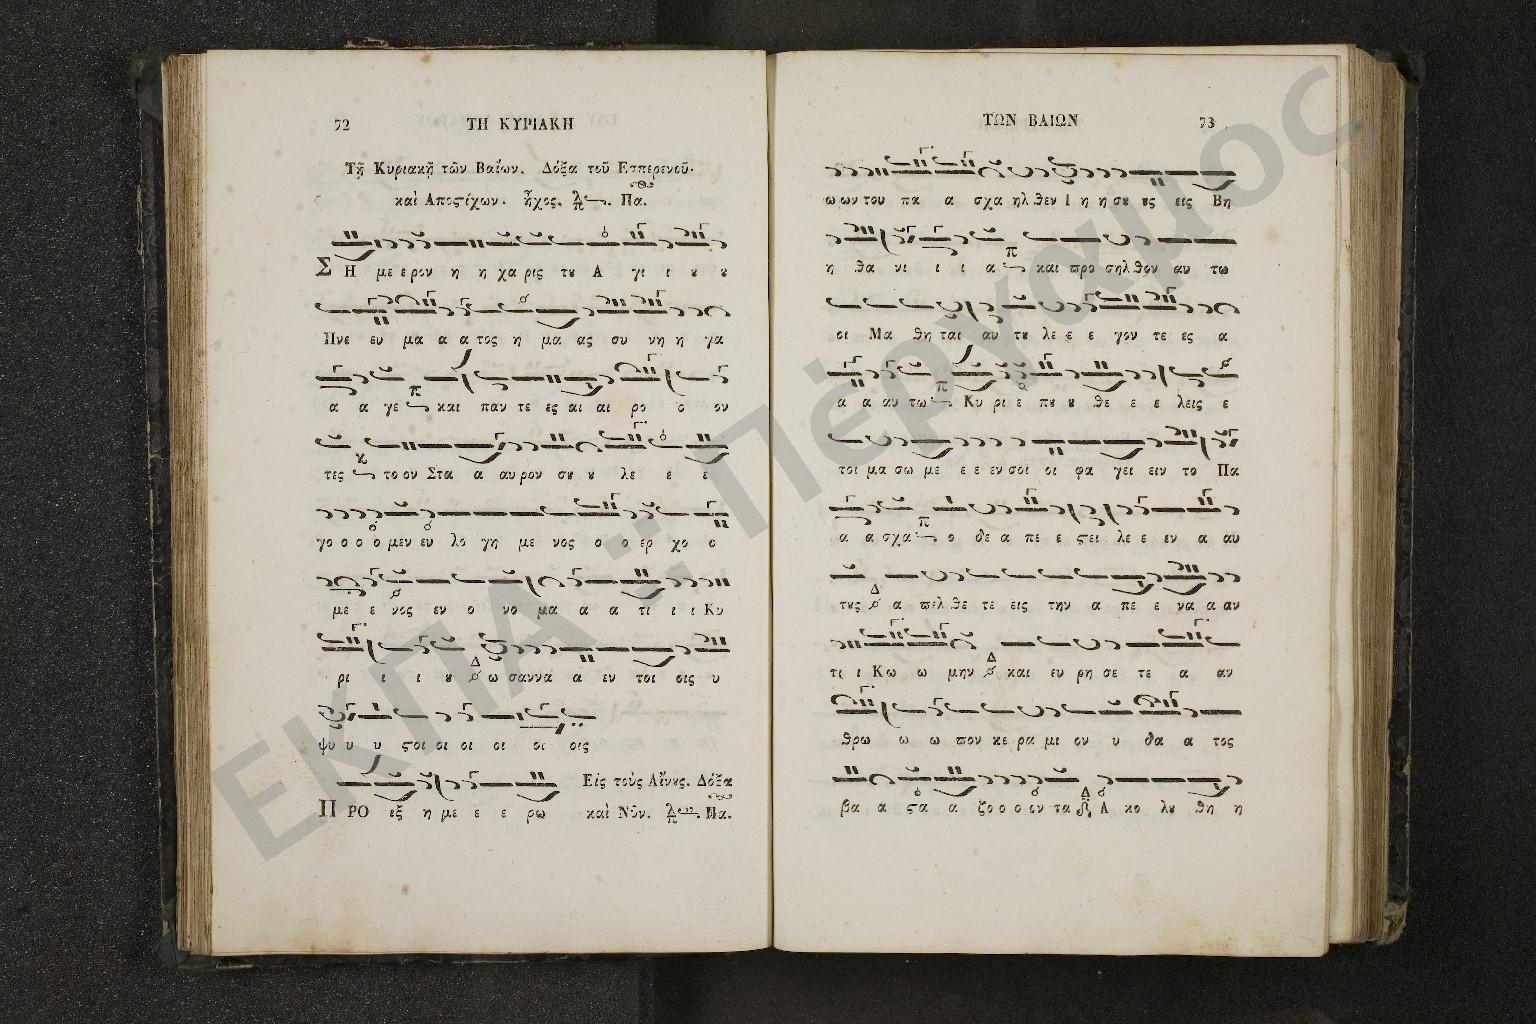 72 ΤΗ ΚΥΡΙΑΚΗ
Τῇ Κυριακῇ τῶν Βαΐων. Δόξα τοῦ Εσπερενοῦ.
καὶ Αποστίχων. ἦχος. Πα.
Σ Η με ε ρον η η χα ρις τȣ Α γι ι ȣ ȣ
Πνε ευ μα α α τος η μα ας συ νη η γα
α α γε και παν τε ες αι αι ρο ο ον
τες το ον Στα α αυ ρον σȣ ȣ λε ε ε
γο ο ο ο μεν ευ λο γη με νος ο ο ερ χο ο
με ε νος εν ο νο μα α α τι ι ι Κυ
ρι ι ι ȣ ω σαννα α εν τοι οις υ
ψυ υ υ ϛοι οι οι οι οι οις
Π ΡΟ εξ η με ε ε ρω Εἰς τοὺς Αἴνȣς. Δόξα
καὶ Νῦν. Πα.
ΤΩΝ ΒΑΙΩΝ 73
ω ων του πα α σχα ηλ θεν Ι η η σȣ ȣς εις Βη
η θα νι ι ι α και προ σηλθον αυ τω
οι Μα θη ται αυ τȣ λε ε ε γον τε ες α
α α αυ τω Κυ ρι ε πȣ ȣ θε ε ε λεις ε
τοι μα σω με ε ε εν σοι οι φα γει ειν το Πα
α α σχα ο δε α πε ε ϛει λε ε εν α αυ
τȣς α πελ θε τε εις την α πε ε να α αν
τι ι Κω ω μην και ευ ρη σε τε α αν
θρω ω ω πον κε ρα μι ον υ δα α τος
βα α ϛα α ζο ο ο ον τα Α κο λȣ θη η
ΕΚΠΑ : Πέργαμος